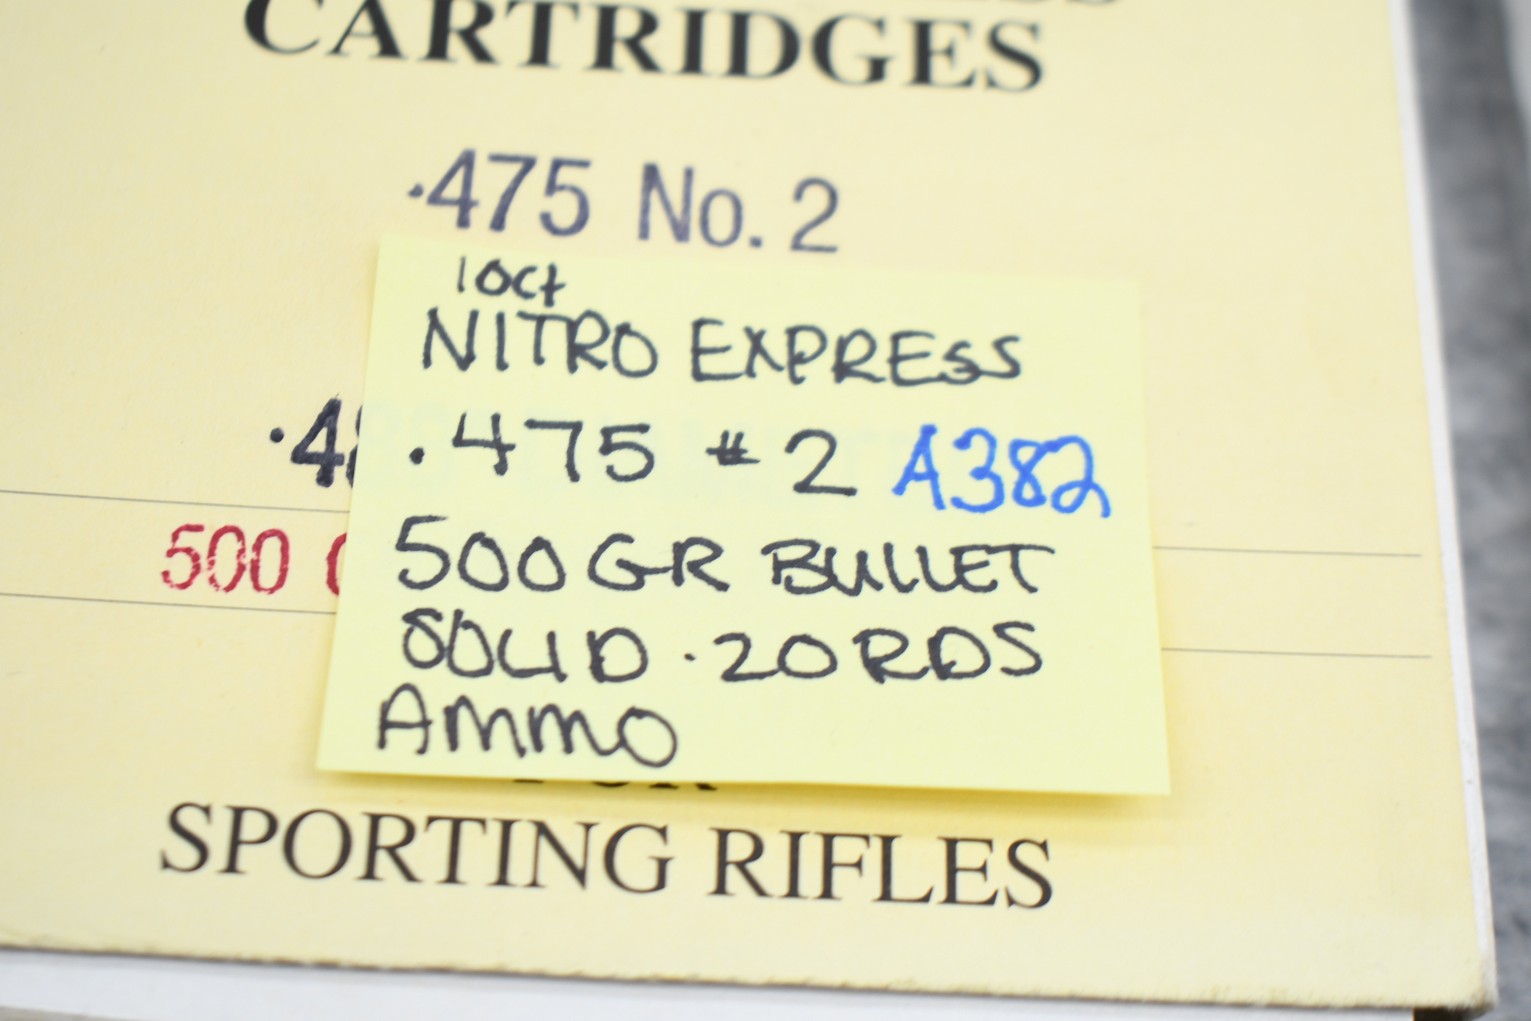 CARTRIDGES
.475 No. 2
10ct
NITRO EXPRESS
.475 #2 A382
500 GR BULLET
SOLID . 20 RDS
AMMO
500
SPORTING RIFLES